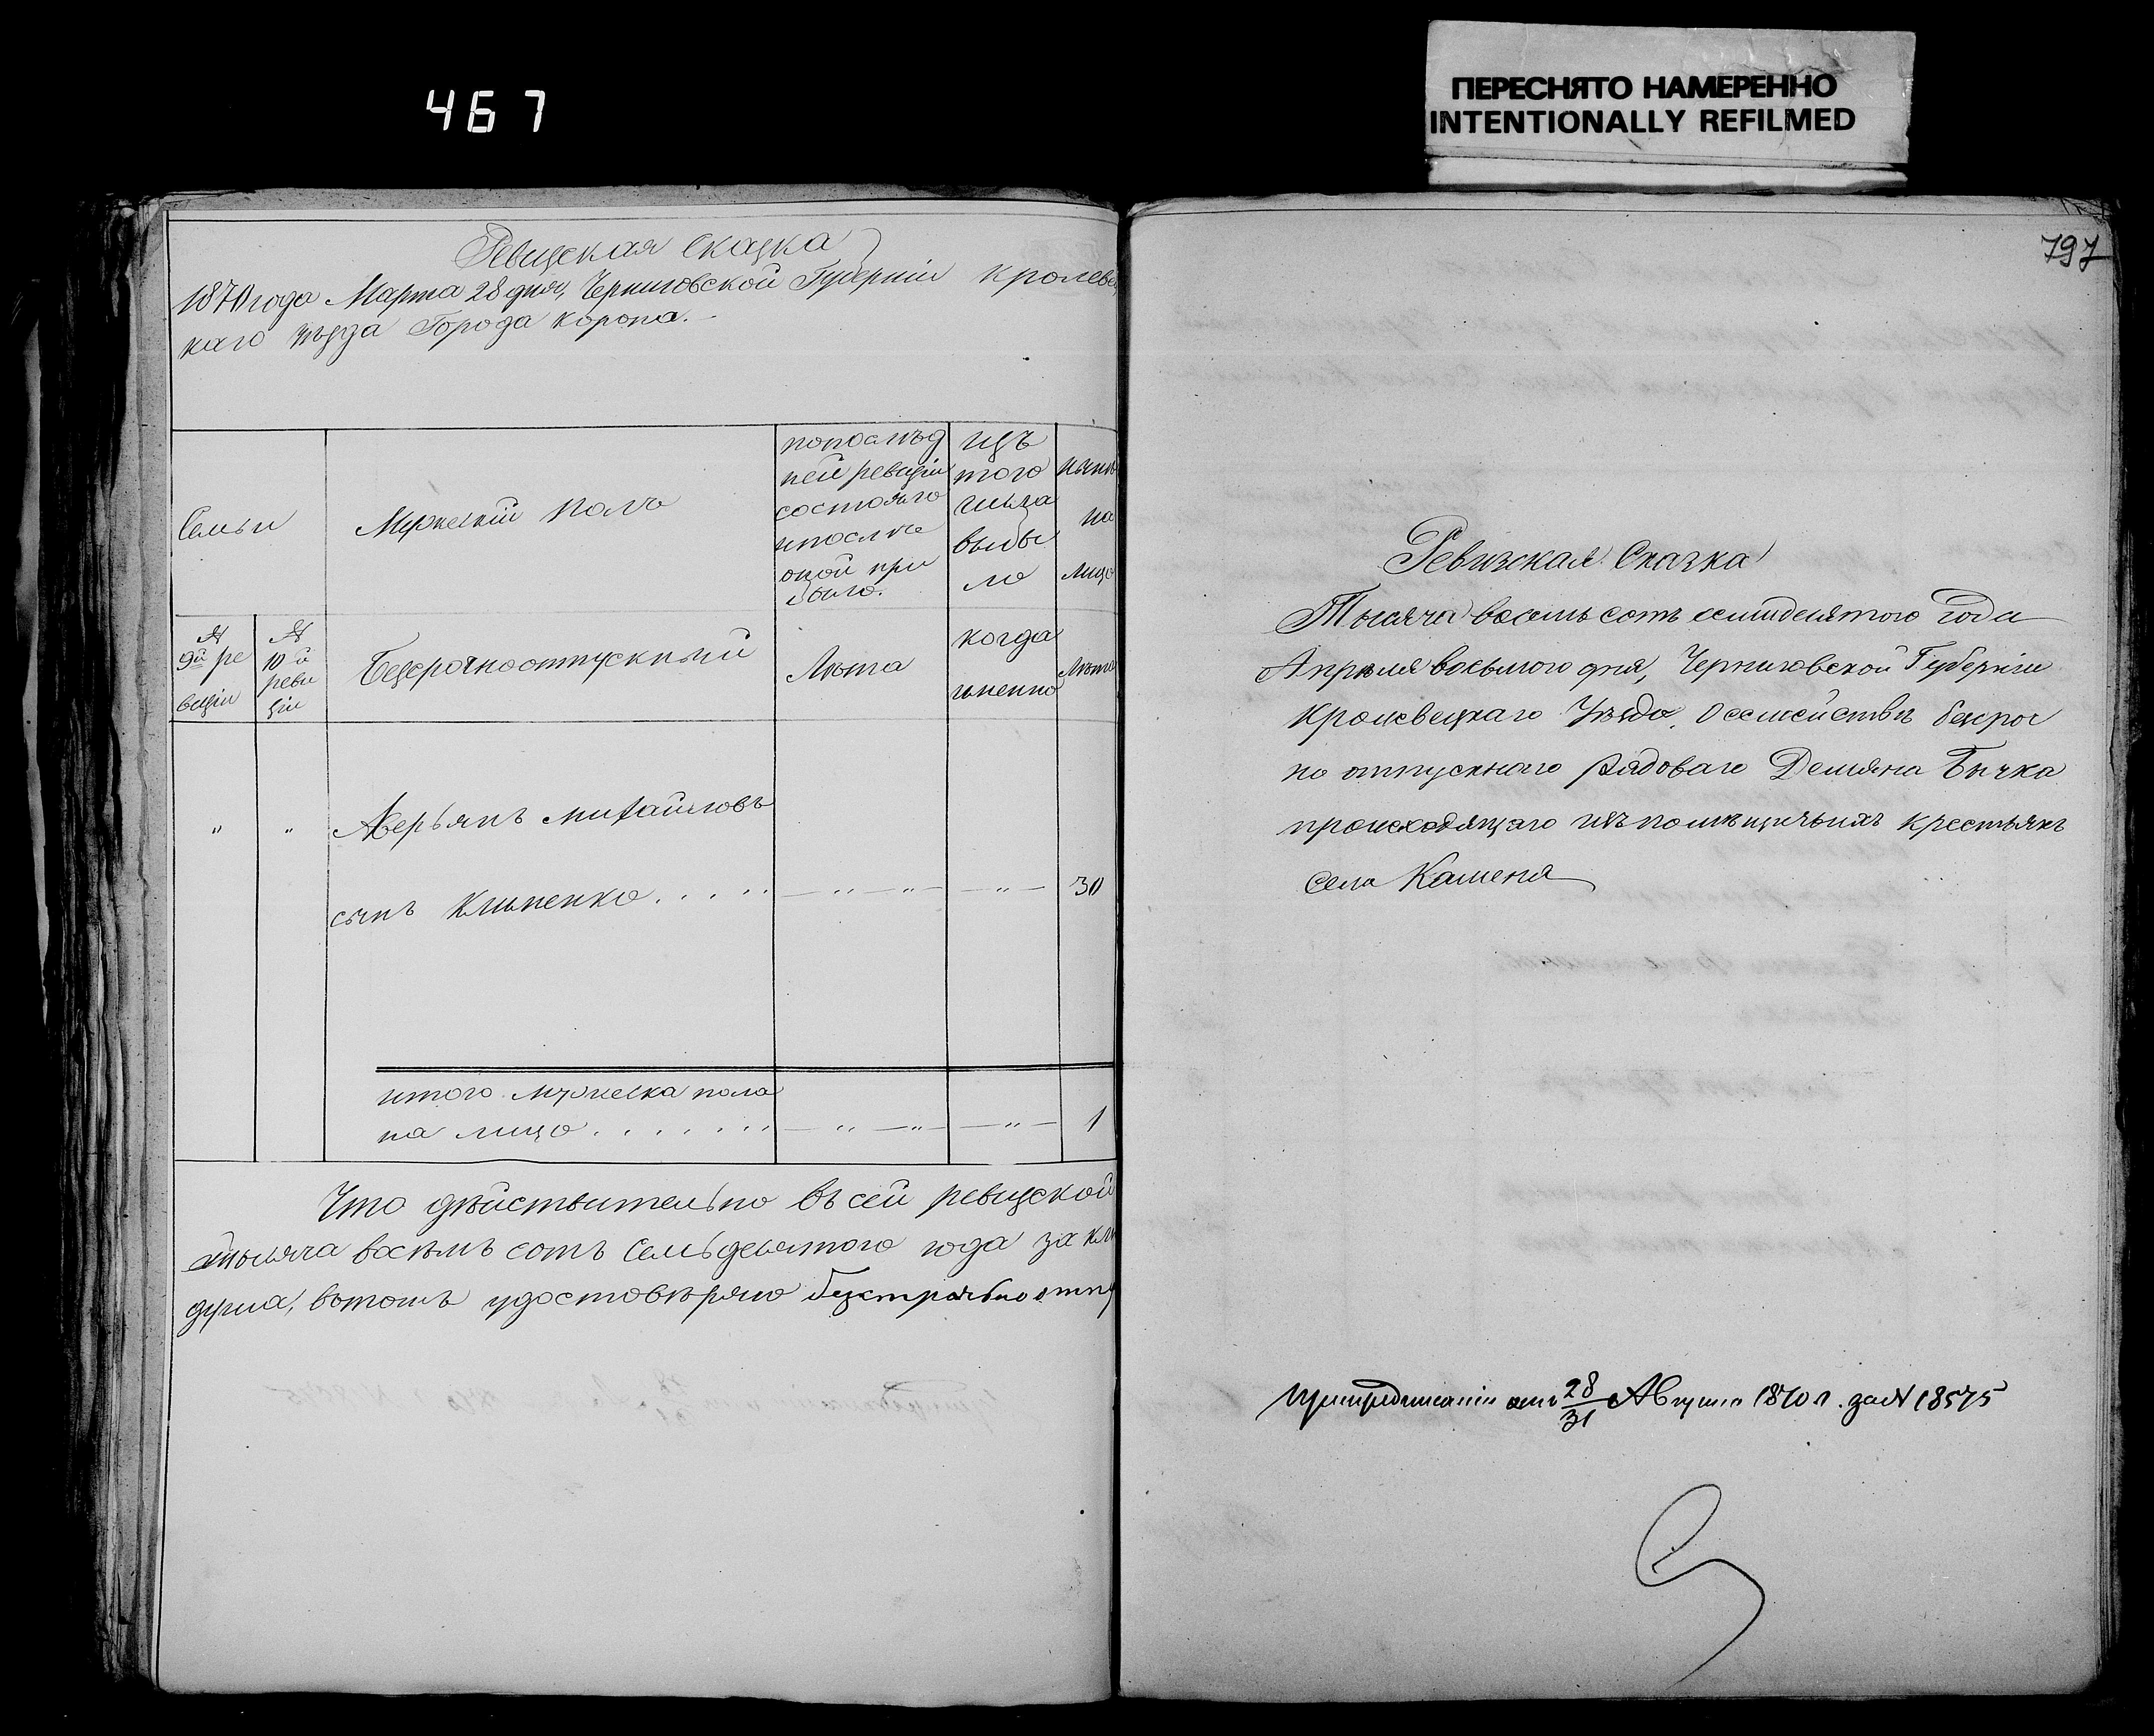 467
ПЕРЕСНЯТО НАМЕРЕННО
INTENTIONALLY REFILMED
Ревизская Сказка
1870 года Марта 28 дня, Черниговской Губерніи Кролевец
каго уѣзда Города Коропа.
Семьи
Мужескій полъ
попослѣд
ней ревизіи
состояло
ипосле
оной при
было.
изъ
того
числа
выбы
ло
нынѣ
на
лицо
№
9й ре
визіи
№
10й
реви
зіи
Безсрочноотпускный
Лѣта
когда
именно
Лѣта
" "
Аверьянъ Михайловъ
сынъ Клименко . . . . . — " — " — — " — 30
итого Мужеска пола
на лицо . . . . . . . — " — " — — " — 1
Что дѣйствительно въ сей ревизской
тысяча восѣмъ сотъ Семьдесятого года
душа, вътомъ удостовѣряю
797
Ревизская Сказка
Тысяча восемь сотъ семидесятого года
Апрѣля восьмого дня, Черниговской Губерніи
Кролевецкаго Уѣзда, О семействѣ безсроч
но отпускного рядоваго Демяна Бычка
происходящаго изъ помѣщичьихъ крестьянъ
села Каменя
При предписаніи отъ 28/31 Августа 1870 г. за № 18575